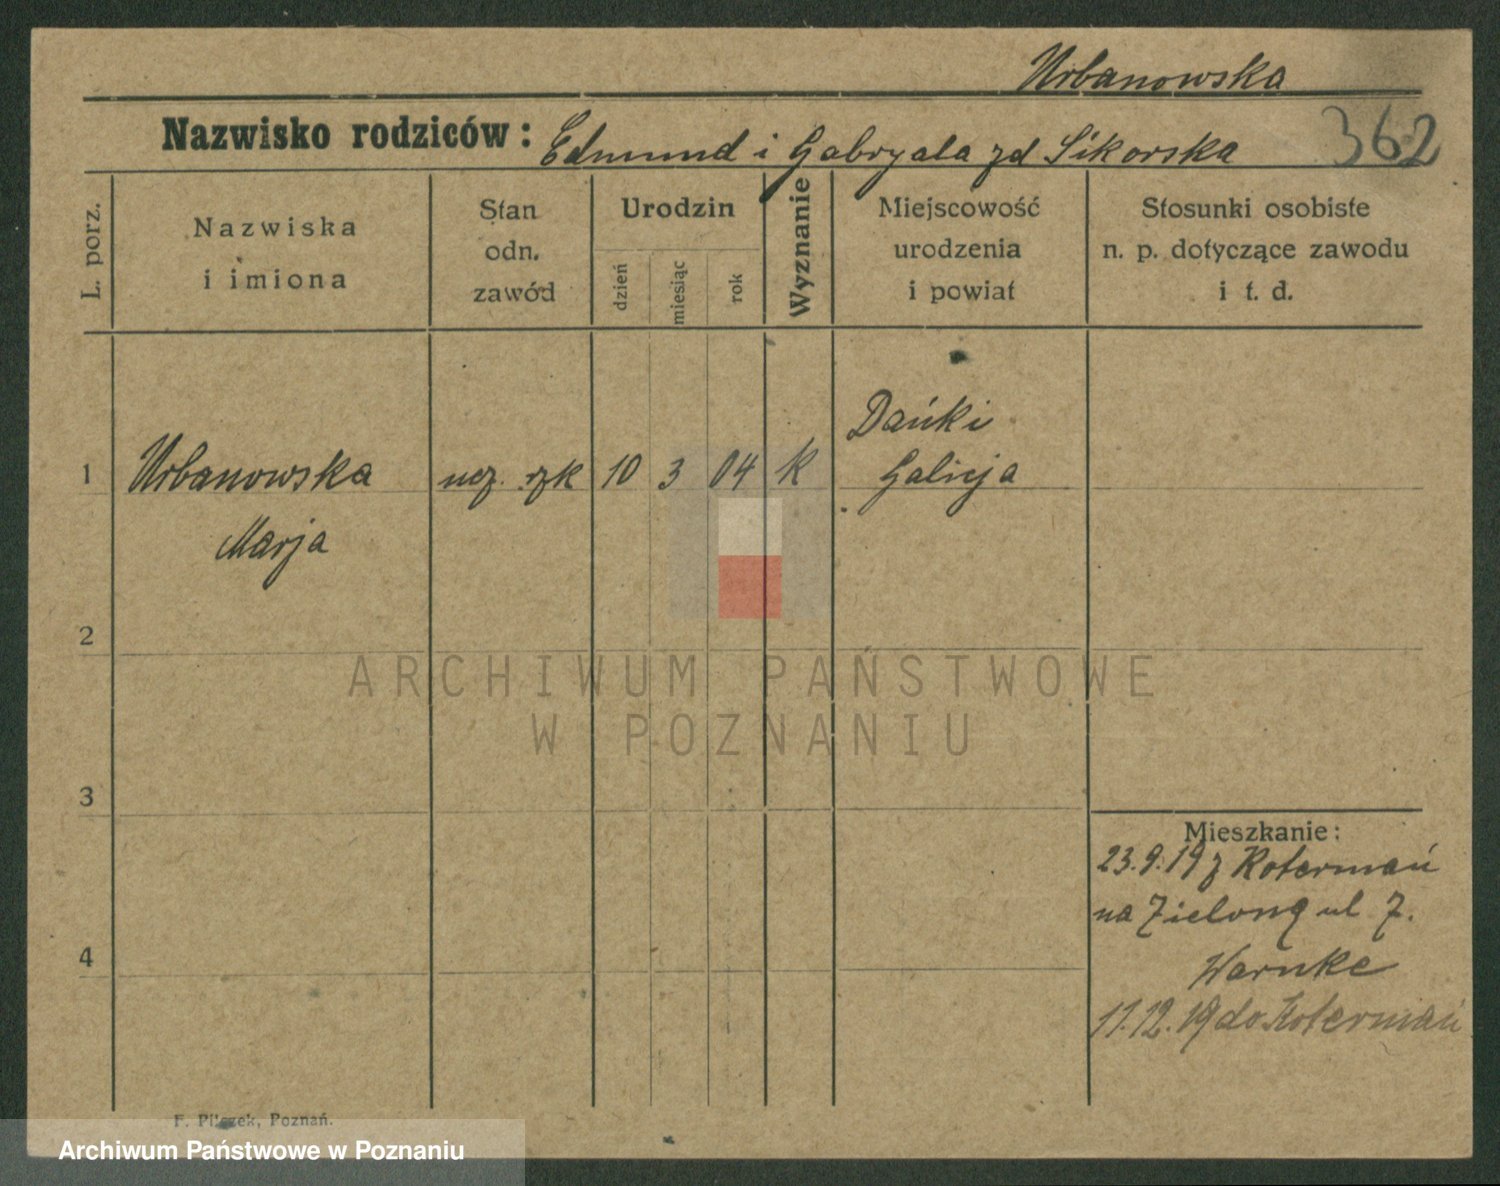 Urbanowska
Nazwisko rodziców: Edmund i Gabryala zd Sikorska 362
L. porz.
Nazwiska
i imiona
Stan
odn.
zawód
Urodzin
dzień
miesiąc
rok
Wyznanie
Miejscowość
urodzenia
i powiat
Stosunki osobiste
n. p. dotyczące zawodu
i t. d.
1 Urbanowska ucz. rzk 10 3 04 k Dańki
Galicja
Marja
2
ARCHIWUM PAŃSTWOWE
W POZNANIU
3
Mieszkanie:
23.9.19 z Kotermań
na Zieloną ul 7.
Warnke
4
11.12.19 do Kotermań
F. Pilczek, Poznań.
Archiwum Państwowe w Poznaniu